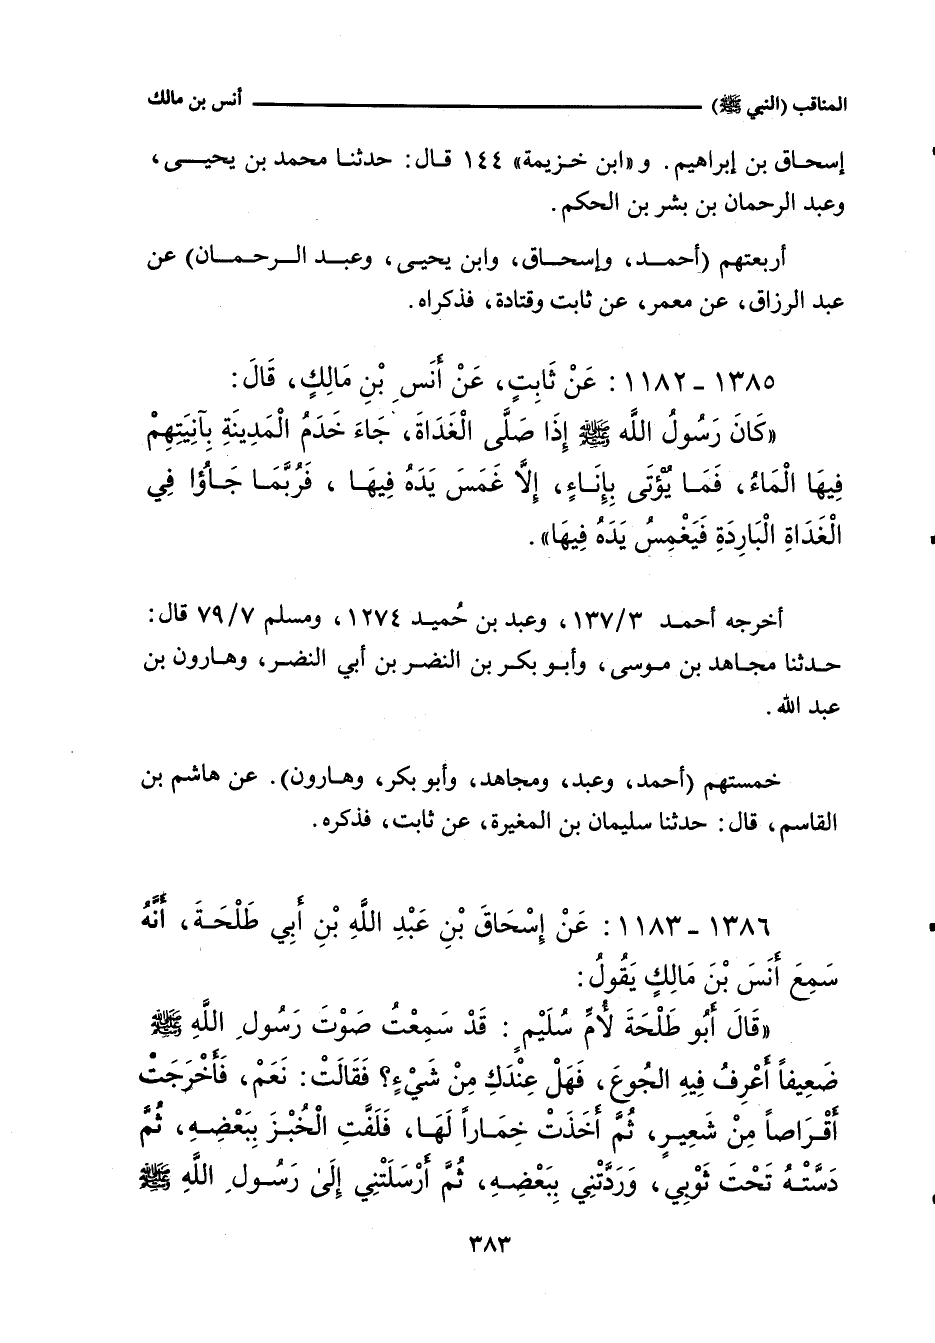 المناقب (النبي ﷺ) أنس بن مالك
إسحاق بن إبراهيم. و«ابن خزيمة» ١٤٤ قال: حدثنا محمد بن يحيى،
وعبد الرحمان بن بشر بن الحكم.
أربعتهم (أحمد، وإسحاق، وابن يحيى، وعبد الرحمان) عن
عبد الرزاق، عن معمر، عن ثابت وقتادة، فذكراه.
١٣٨٥ - ١١٨٢: عَنْ ثَابِتٍ، عَنْ أَنَسِ بْنِ مَالِكٍ، قَالَ:
«كَانَ رَسُولُ اللَّه ﷺ إِذَا صَلَّى الْغَدَاةَ، جَاءَ خَدَمُ الْمَدِينَةِ بِآنِيَتِهِمْ
فِيهَا الْمَاءُ، فَمَا يُؤْتَى بِإِنَاءٍ، إِلَّا غَمَسَ يَدَهُ فِيهَا ، فَرُبَّمَا جَاؤُا فِي
الْغَدَاةِ الْبَارِدَةِ فَيَغْمِسُ يَدَهُ فِيهَا».
أخرجه أحمد ١٣٧/٣، وعبد بن حُميد ١٢٧٤، ومسلم ٧٩/٧ قال:
حدثنا مجاهد بن موسى، وأبو بكر بن النضر بن أبي النضر، وهارون بن
عبد الله.
خمستهم (أحمد، وعبد، ومجاهد، وأبو بكر، وهارون). عن هاشم بن
القاسم، قال: حدثنا سليمان بن المغيرة، عن ثابت، فذكره.
١٣٨٦ - ١١٨٣: عَنْ إِسْحَاقَ بْنِ عَبْدِ اللَّهِ بْنِ أَبِي طَلْحَةَ، أَنَّهُ
سَمِعَ أَنَسَ بْنَ مَالِكٍ يَقُولُ:
«قَالَ أَبُو طَلْحَةَ لأُمِّ سُلَيْمٍ : قَدْ سَمِعْتُ صَوْتَ رَسُولِ اللَّهِ ﷺ
ضَعِيفاً أَعْرِفُ فِيهِ الجُوعَ، فَهَلْ عِنْدَكِ مِنْ شَيْءٍ؟ فَقَالَتْ: نَعَمْ، فَأَخْرَجَتْ
أَقْرَاصاً مِنْ شَعِيرٍ، ثُمَّ أَخَذَتْ خِمَاراً لَهَا، فَلَفَّتِ الْخُبْزَ بِبَعْضِهِ، ثُمَّ
دَسَّتْهُ تَحْتَ ثَوْبِي، وَرَدَّتْنِي بِبَعْضِهِ، ثُمَّ أَرْسَلَتْنِي إِلَىٰ رَسُولِ اللَّهِ ﷺ
٣٨٣